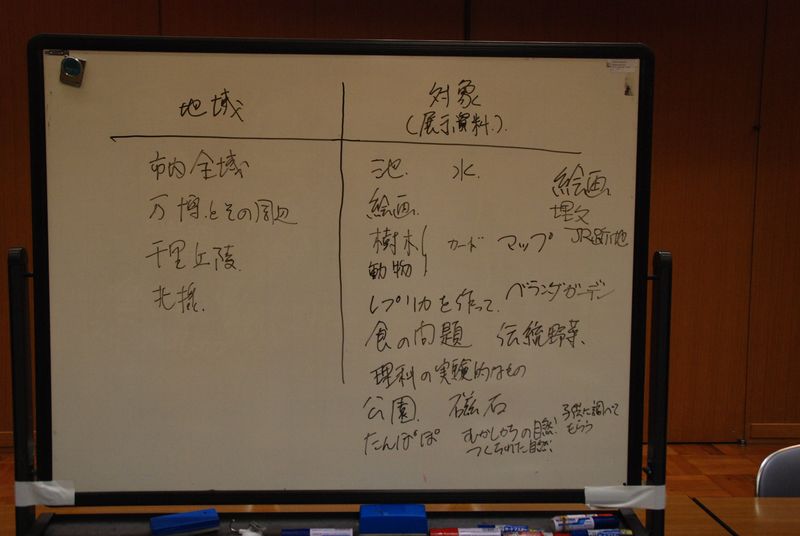 地域
対象
(展示資料)
市内全域
万博とその周辺
千里丘陵
北摂
池 水
絵画
埋文
絵画
樹木 カード マップ JR跡地
動物
レプリカを作って ベランダガーデン
食の問題 伝統野菜
理科の実験的なもの
公園 磁石 子供に調べて
もらう
たんぽぽ むかしからの自然
つくられた自然